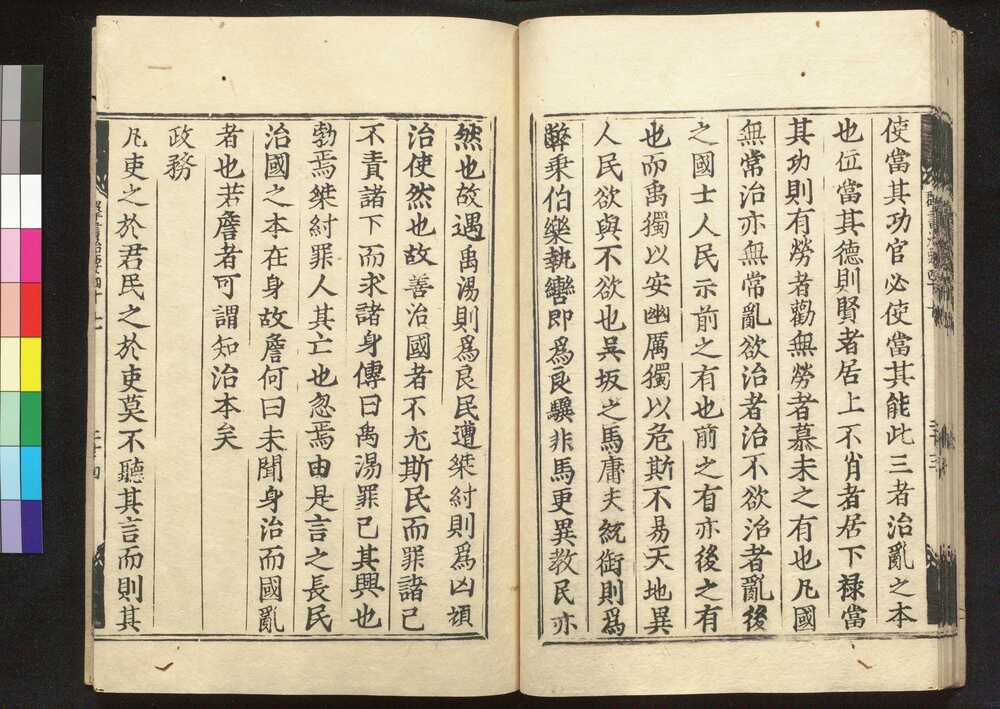 使當其功官必使當其能此三者治亂之本
也位當其德則賢者居上不肖者居下祿當
其功則有勞者勸無勞者慕未之有也凡國
無常治亦無常亂欲治者治不欲治者亂後
之國士人民亦前之有也前之有亦後之有
也而禹獨以安幽厲獨以危斯不易天地異
人民欲與不欲也吳坂之馬庸夫統銜則爲
弊乘伯樂執轡即爲良驥非馬更異教民亦
然也故遇禹湯則爲良民遭桀紂則爲凶頑
治使然也故善治國者不尤斯民而罪諸己
不責諸下而求諸身傳曰禹湯罪己其興也
勃焉桀紂罪人其亡也忽焉由是言之長民
治國之本在身故詹何曰未聞身治而國亂
者也若詹者可謂知治本矣
政務
凡吏之於君民之於吏莫不聽其言而則其
群書治要四十七
二十四